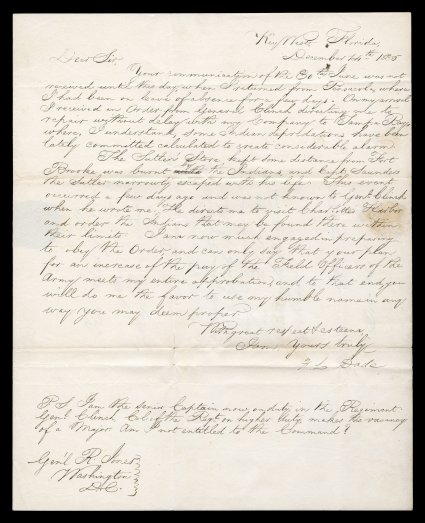 Key West Florida
December 14th 1835
Dear Sir,
Your communication of the 30th June was not
received until this day, when I returned from where
I had been on leave of absence for a few days. On my arrival
I received an Order from General Clinch directing me to
repair without delay with my Company to Tampa Bay
where, I understand, some Indian depredations have been
lately committed calculated to create considerable alarm.
The Sutler Store kept some distance from Fort
Brooke was burnt by the Indians and Capt Saunders
the Sutler narrowly escaped with his life. This event
occurred a few days ago and was not known to Genl Clinch
when he wrote me. He directs me to visit Charlotte Harbor
and order the Indians that may be found there within
their limits. I am now much engaged in preparing
to obey the Order, and can only say that your plan
for an increase of the pay of the Field Officers of the
Army meets my entire approbation, and to that end you
will do me the favor to use my humble name in any
way you may deem proper
With great respect & esteem
I am Yours truly
F L Dade
P.S. I am the senior Captain now on duty in the Regiment.
Genl Clinch Col of the Regt on higher duty makes the vacancy
of a Major Am I not entitled to the Command?
Gen'l R. Jones
Washington
D.C.